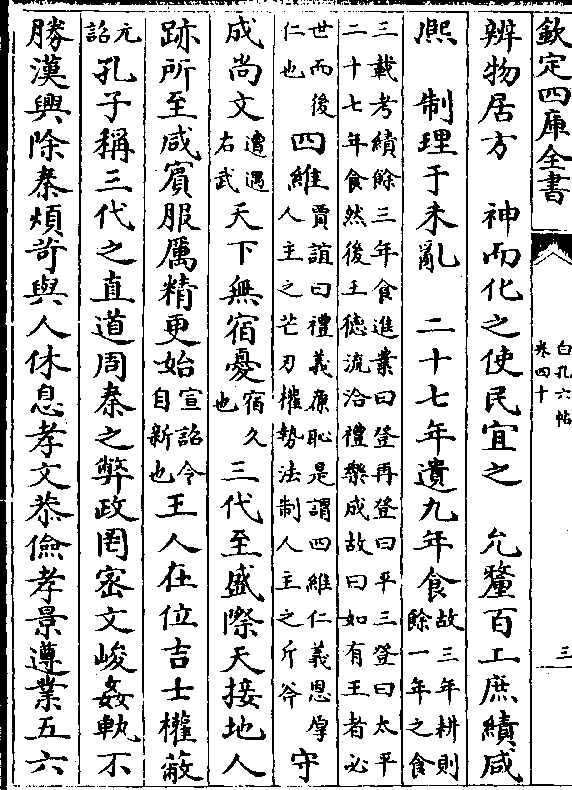 欽定四庫全書
白孔六帖
卷四十
三
辨物居方　神而化之使民宜之　允釐百工庶績咸
熙　制理于未亂　二十七年遺九年食故三年耕則
餘一年之食
三載考績餘三年食進業曰登再登曰平三登曰太平
二十七年食然後王德流洽禮樂成故曰如有王者必
世而後
仁也
四維
賈誼曰禮義廉恥是謂四維仁義恩厚
人主之芒刃權勢法制人主之斤斧
守
成尚文
遭遇
右武
天下無宿憂
宿久
也
三代至盛際天接地人
跡所至咸賓服厲精更始
宣詔令
自新也
王人在位吉士權蔽
元
詔
孔子稱三代之直道周秦之弊政罔密文峻姦軌不
勝漢興除秦煩苛與人休息孝文恭儉孝景遵業五六